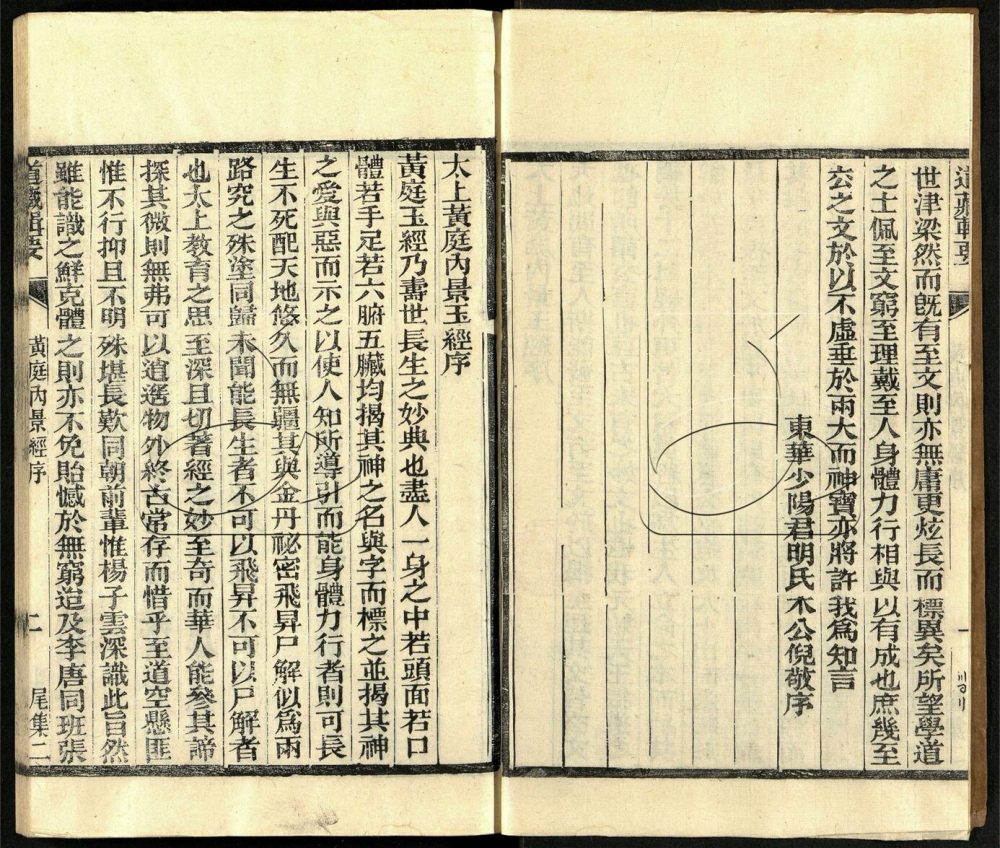 世津梁然而既有至文則亦無庸更炫長而標異矣所望學道
之士佩至文窮至理戴至人身體力行相與以有成也庶幾至
玄之文於以不虛垂於兩大而神寶亦將許我為知言
東華少陽君明氏木公倪敬序
太上黃庭內景玉經序
黃庭玉經乃壽世長生之妙典也盡人一身之中若頭面若口
體若手足若六腑五臟均揭其神之名與字而標之並揭其神
之愛與惡而示之以使人知所導引而能身體力行者則可長
生不死配天地悠久而無疆其與金丹祕密飛昇尸解似為兩
路究之殊塗同歸未聞能長生者不可以飛昇不可以尸解者
也太上教育之思至深且切著經之妙至奇而華人能參其諦
探其微則無弗可以道遙物外終古常存而惜乎至道空懸匪
惟不行抑且不明殊堪長歎同朝前輩惟楊子雲深識此旨然
雖能識之鮮克體之則亦不免貽憾於無窮迨及李唐同班張
道藏輯要 黃庭內景經序 二 尾集二